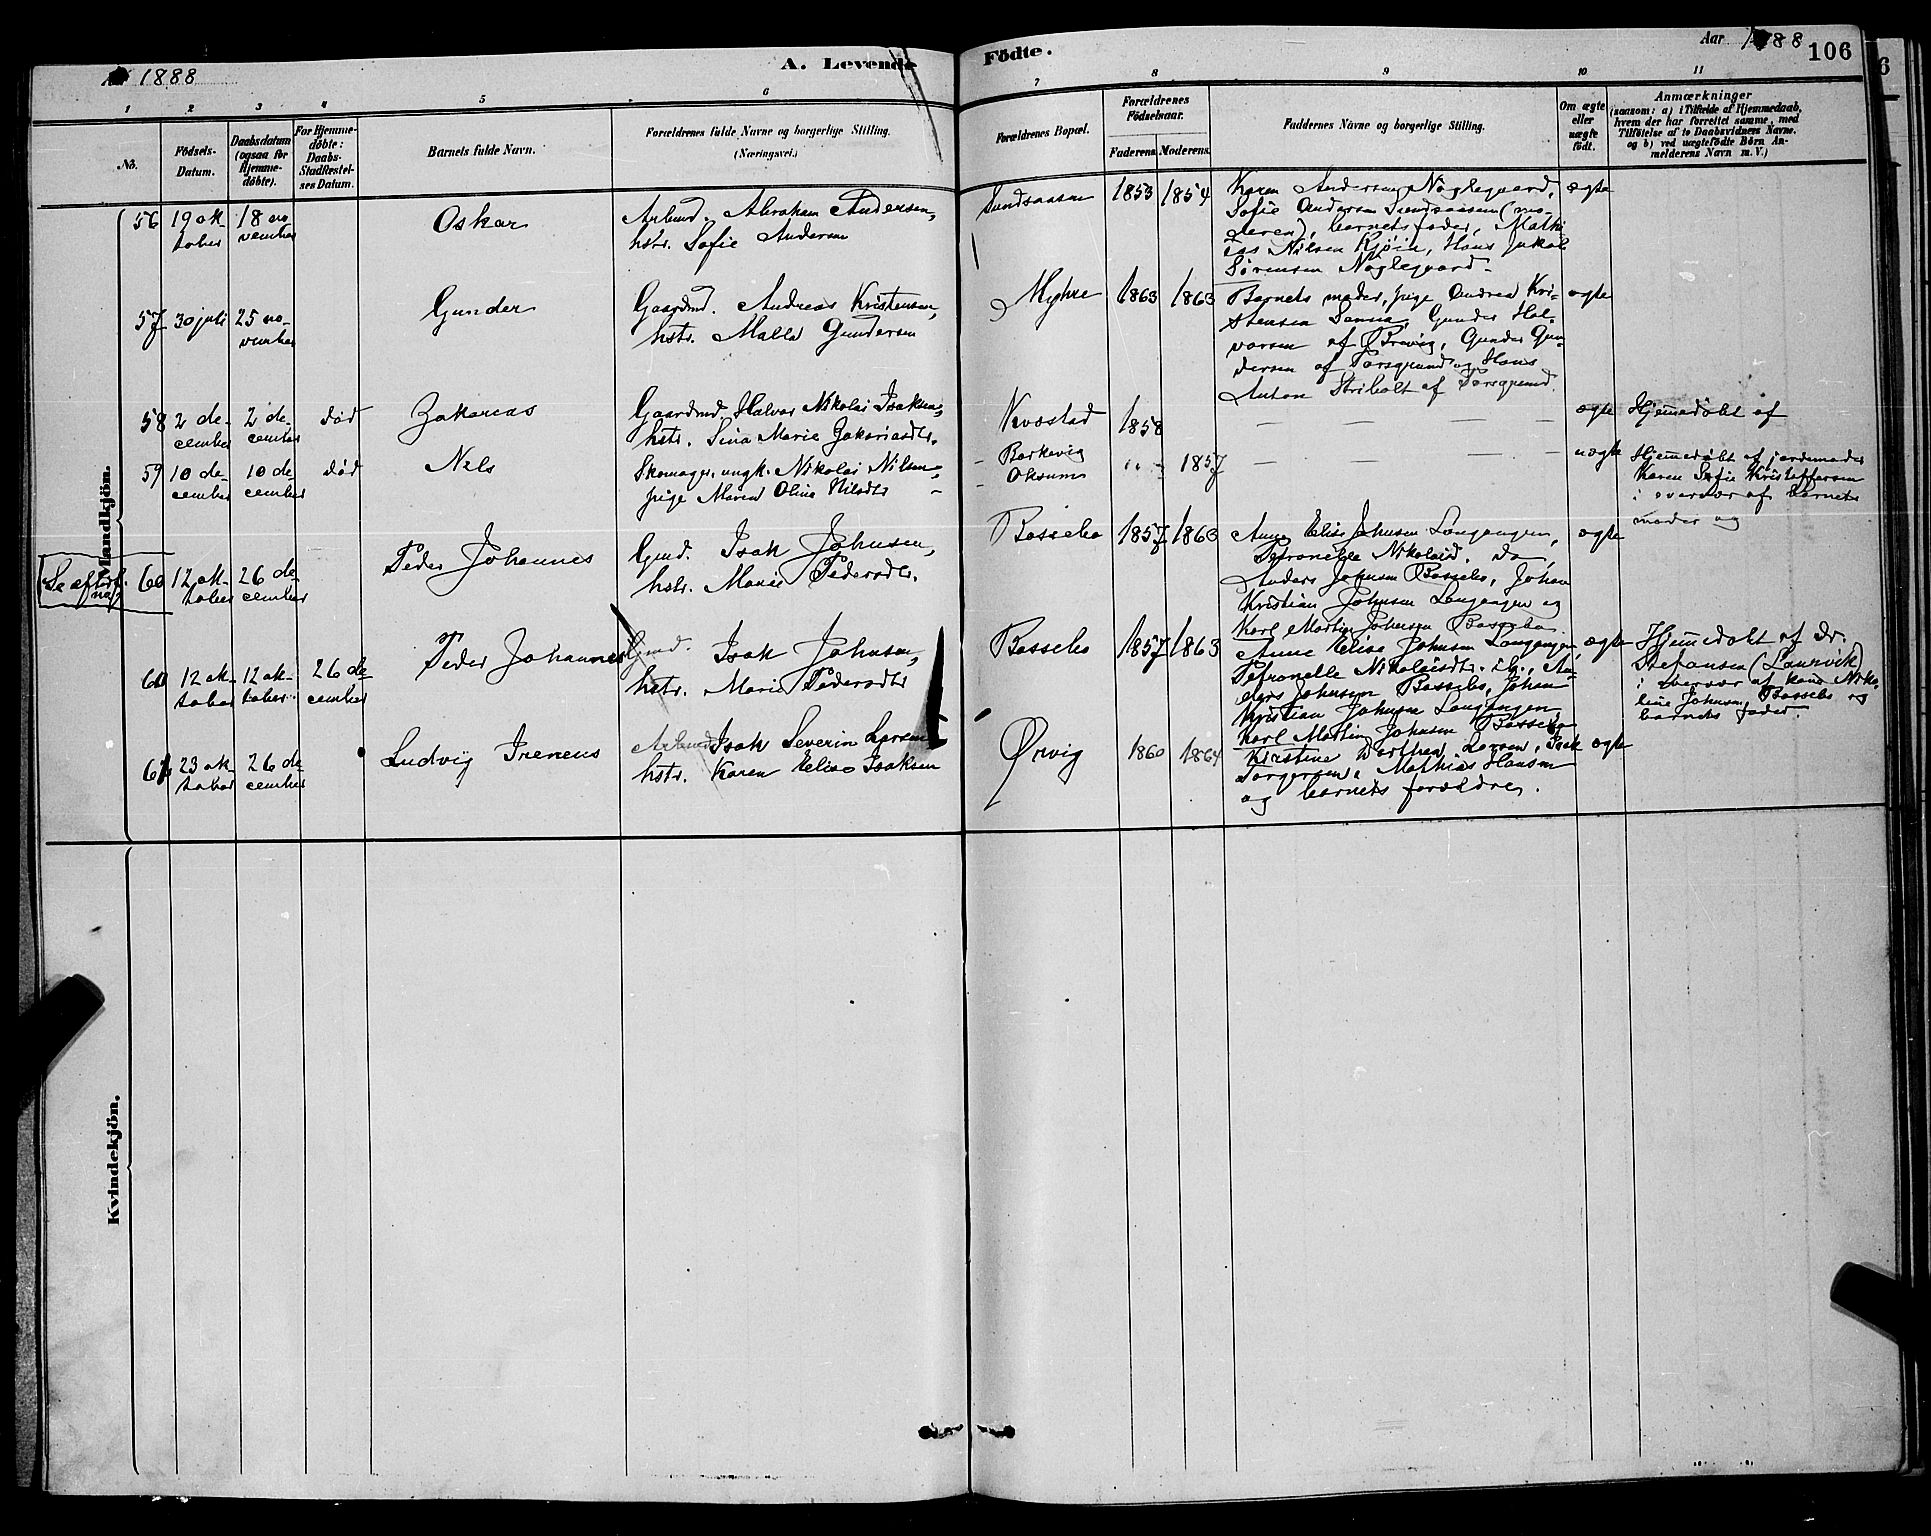 Aar 1888
A. Levende
Födte.
Aar 1888
106
1 2 3 4 5 6 7 8 9 10 11
No.
Födsels-
Datum.
Daabsdatum
(ogsaa for
Hjemme-
döbte).
For Hjemme-
döbte:
Daabs-
Stadfæstel-
ses Datum.
Barnets fulde Navn.
Forældrenes fulde Navne og borgerlige Stilling.
(Næringsvei.)
Forældrenes Bopæl.
Forældrenes
Födselsaar.
Faderens. Moderens.
Faddernes Navne og borgerlige Stilling.
Om ægte
eller
uægte
født.
Anmærkninger
(saasom: a) i Tilfælde af Hjemmedaab,
hvem der har forrettet samme, med
Tilföielse af to Daabsvidners Navne,
og b) ved uægtefödte Börn An-
melderens Navn m. V.)
Mandkjön.
56
19 ok-
tober
18 no-
vember
Oskar
Arbmd. Abraham Andersen,
hstr. Sofie Andersen
Sundsaasen
1853
1854
Karen Andersen Nøglegaard,
Sofie Andersen Sundsaasen (mo-
deren), barnets fader, Mathi-
as Nilsen Kjøin, Hans Jakob
Sørensen Nøglegaard
ægte
57
30 juli
25 no-
vember
Gunder
Gaardmd. Andreas Kristensen,
hstr. Malla Gundersen
Myhre
1863
1863
Barnets moder, pige Andrea Kri-
stensen, Gunder Hal-
vorsen af Brevig, Gunder Gun-
dersen af Porsgrund og Hans
Anton af Porsgrund.
ægte
58
2 de-
cember
2 de-
cember
død
Zakarias
Gaardmd. Halvor Nikolai Isaksen,
hstr. Sina Marie Zakariasdtr.
Kvæstad
1858
ægte
Hjemmedøbt af
59
10 de-
cember
10 de-
cember
død
Nils
Skomager, ungk. Nikolai Nilsen,
pige Maren Olina Nilsdtr
Barkevig
Oksum
1857
uægte
Hjemmedøbt af jordemoder
Karen Sofie Kristoffersen
i overvær af barnets
moder og
60
12 ok-
tober
26 de-
cember
Peder Johannes
Gmd. Isak Johnsen,
hstr. Marie Pedersdtr.
Bassebo
1857
1863
Anne Elise Johnsen Langangen,
Petronelle Nikolaisd. do,
Anders Johnsen Bassebo, Johan
Kristian Johnsen Langangen og
Karl Martin Johnsen Bassebo
ægte
60
12 ok-
tober
12 ok-
tober
26 de-
cember
Peder Johannes
Gmd. Isak Johnsen,
hstr. Marie Pedersdtr
Bassebo
1857
1863
Anne Elise Johnsen Langangen,
Petronelle Nikolaisdtr. , An-
ders Johnsen Bassebo, Johan
Kristian Johnsen Langangen,
Karl Martin Johnsen Bassebo
ægte
Hjemmedøbt af Dr.
Stefansen (Laurvik)
i overvær af kone Niko-
line Johnsen Bassebo og
barnets fader.
61
23 ok-
tober
26 de-
cember
Ludvig Ireneus
Arbmd. Isak Severin Larsen
hstr. Karen Elise Isaksen
Ørvig
1860
1864
Kirstine Dorthea Larsen, Isak
Torgersen, Mathias Hansen
og barnets forældre.
ægte
Kvindekjön.